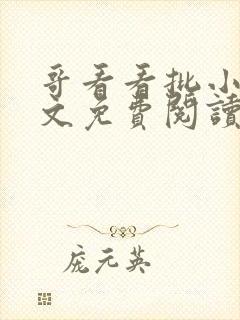 哥看看批小
文免費閱讀
庞元英